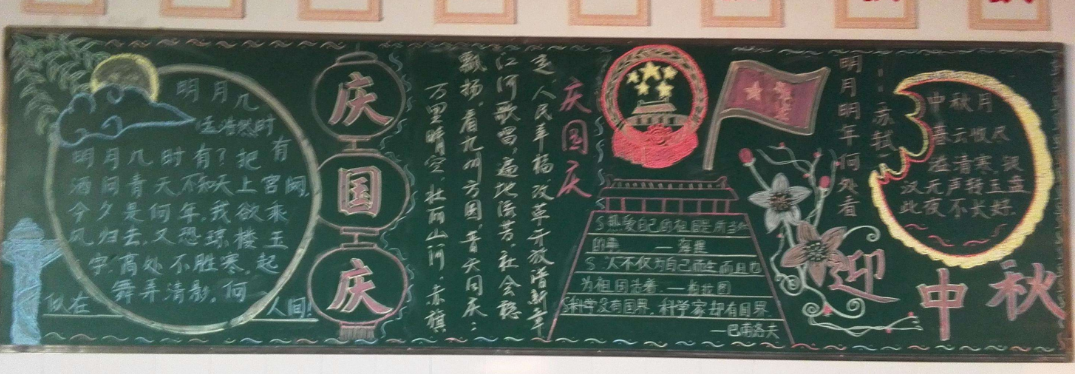 明月几
孟浩然时
有
明月几时有?把
酒问青天不知天上宫阙,
今夕是何年.我欲乘
风归去,又恐琼楼玉
宇.高处不胜寒.起
舞弄清影,何
似在
人间!
庆
国
庆
万里晴空 壮丽山河 赤旗
飘扬,看九州方圆,普天同庆;
江河歌唱,遍地流芳.社会稳
定 人民幸福 改革开放谱新章
庆
国
庆
热爱自己的祖国
的事
人不仅为自己而生而且也
为祖国活着.——柏拉图
科学没有国界,科学家却有国界
—巴甫洛夫
明月明年何处看
苏轼
中秋月
暮云收尽
溢清寒,银
汉无声转玉盘
此夜不长好
迎
中
秋